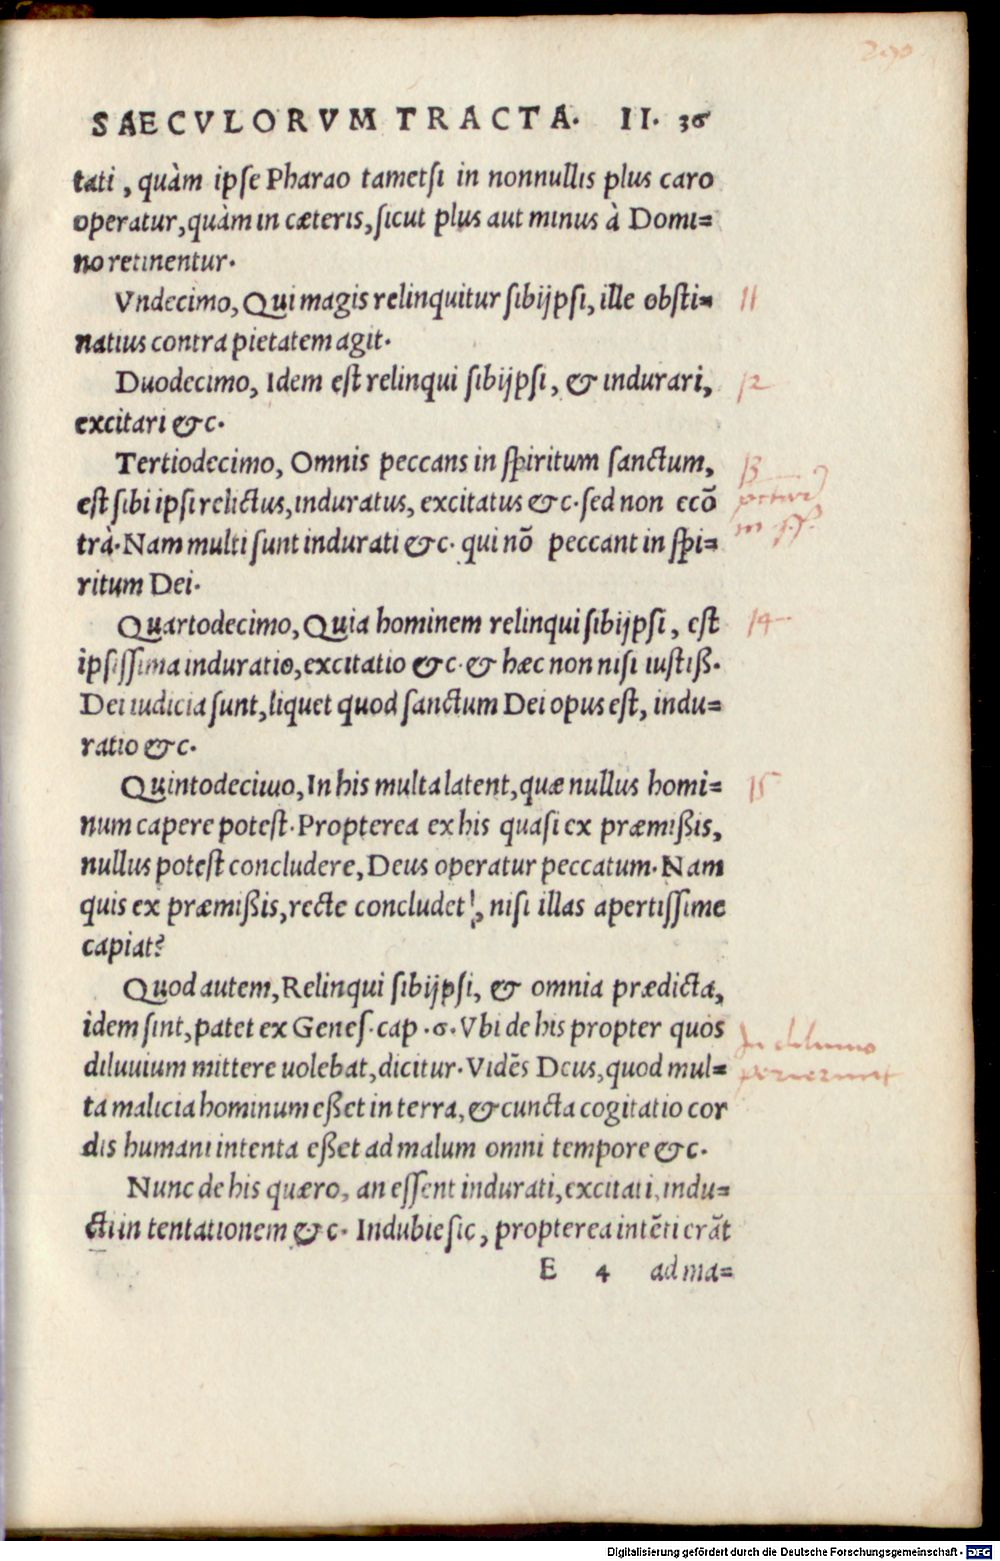 SAECVLORVM TRACTA. II. 36
tati, quàm ipſe Pharao tametſi in nonnullis plus caro
operatur, quàm in cæteris, ſicut plus aut minus à Domi=
no retinentur.
Vndecimo, Qui magis relinquitur ſibijpſi, ille obſti= 11
natius contra pietatem agit.
Duodecimo, Idem eſt relinqui ſibijpſi, & indurari, 12
excitari &c.
Tertiodecimo, Omnis peccans in ſpiritum ſanctum, 13
eſt ſibi ipſi relictus, induratus, excitatus &c. ſed non ecõ
trà. Nam multi ſunt indurati &c. qui nõ peccant in ſpi=
ritum Dei.
Quartodecimo, Quia hominem relinqui ſibijpſi, eſt 14
ipſiſſima induratio, excitatio &c. & hæc non niſi iuſtiß.
Dei iudicia ſunt, liquet quod ſanctum Dei opus eſt, indu=
ratio &c.
Quintodecimo, In his multa latent, quæ nullus homi= 15
num capere poteſt. Propterea ex his quaſi ex præmißis,
nullus poteſt concludere, Deus operatur peccatum. Nam
quis ex præmißis, recte concludet, niſi illas apertiſſime
capiat?
Quod autem, Relinqui ſibijpſi, & omnia prædicta,
idem ſint, patet ex Geneſ. cap. 6. Vbi de his propter quos In diluuio
diluuium mittere uolebat, dicitur. Vidẽs Deus, quod mul= perierunt
ta malicia hominum eßet in terra, & cuncta cogitatio cor
dis humani intenta eßet ad malum omni tempore &c.
Nunc de his quæro, an eſſent indurati, excitati, indu=
cti in tentationem &c. Indubie ſic, propterea intẽti erãt
E 4 ad ma=
Digitalisierung gefördert durch die Deutsche Forschungsgemeinschaft - DFG